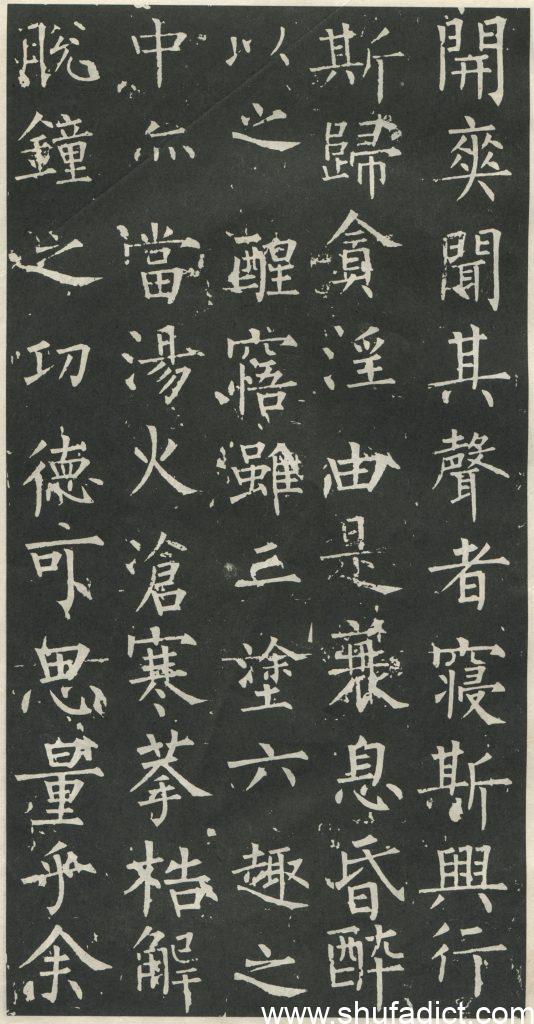 開爽聞其聲者寢斯興行
斯歸貪淫由是衰息昏醉
以之醒寤雖三塗六趣之
中亦當湯火凔寒拲梏解
脫鐘之功德可思量乎余
www.shufadict.com